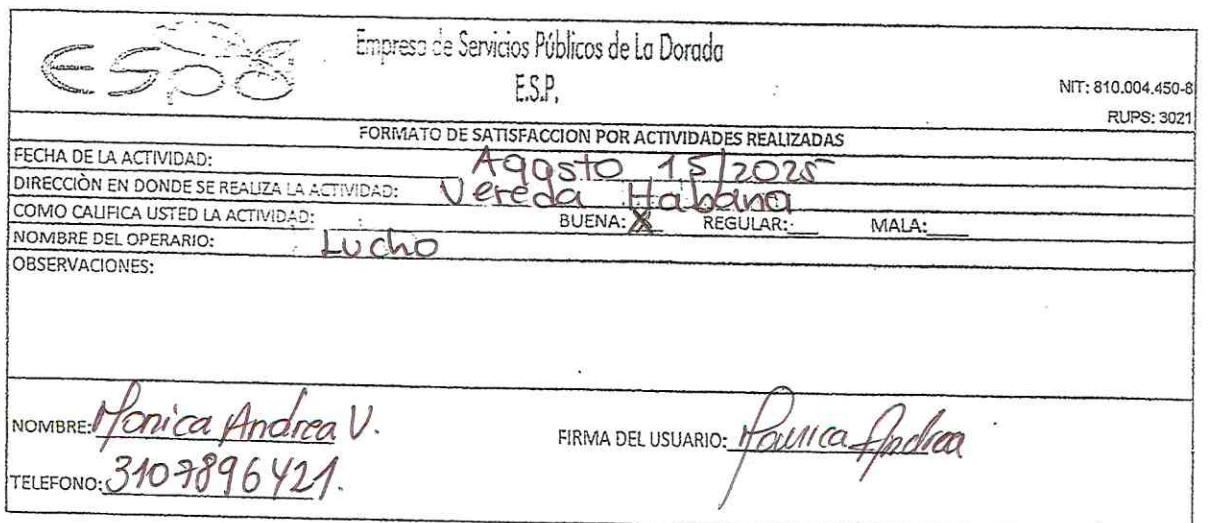 espd
Empresa de Servicios Públicos de La Dorada
E.S.P.
NIT: 810.004.450-8
RUPS: 3021
FORMATO DE SATISFACCION POR ACTIVIDADES REALIZADAS
FECHA DE LA ACTIVIDAD: Agosto 15/2025
DIRECCIÒN EN DONDE SE REALIZA LA ACTIVIDAD: Vereda Habana
COMO CALIFICA USTED LA ACTIVIDAD: BUENA: X REGULAR: MALA:
NOMBRE DEL OPERARIO: Lucho
OBSERVACIONES:
NOMBRE: Monica Andrea V. FIRMA DEL USUARIO: Monica Andrea
TELEFONO: 3107896421.